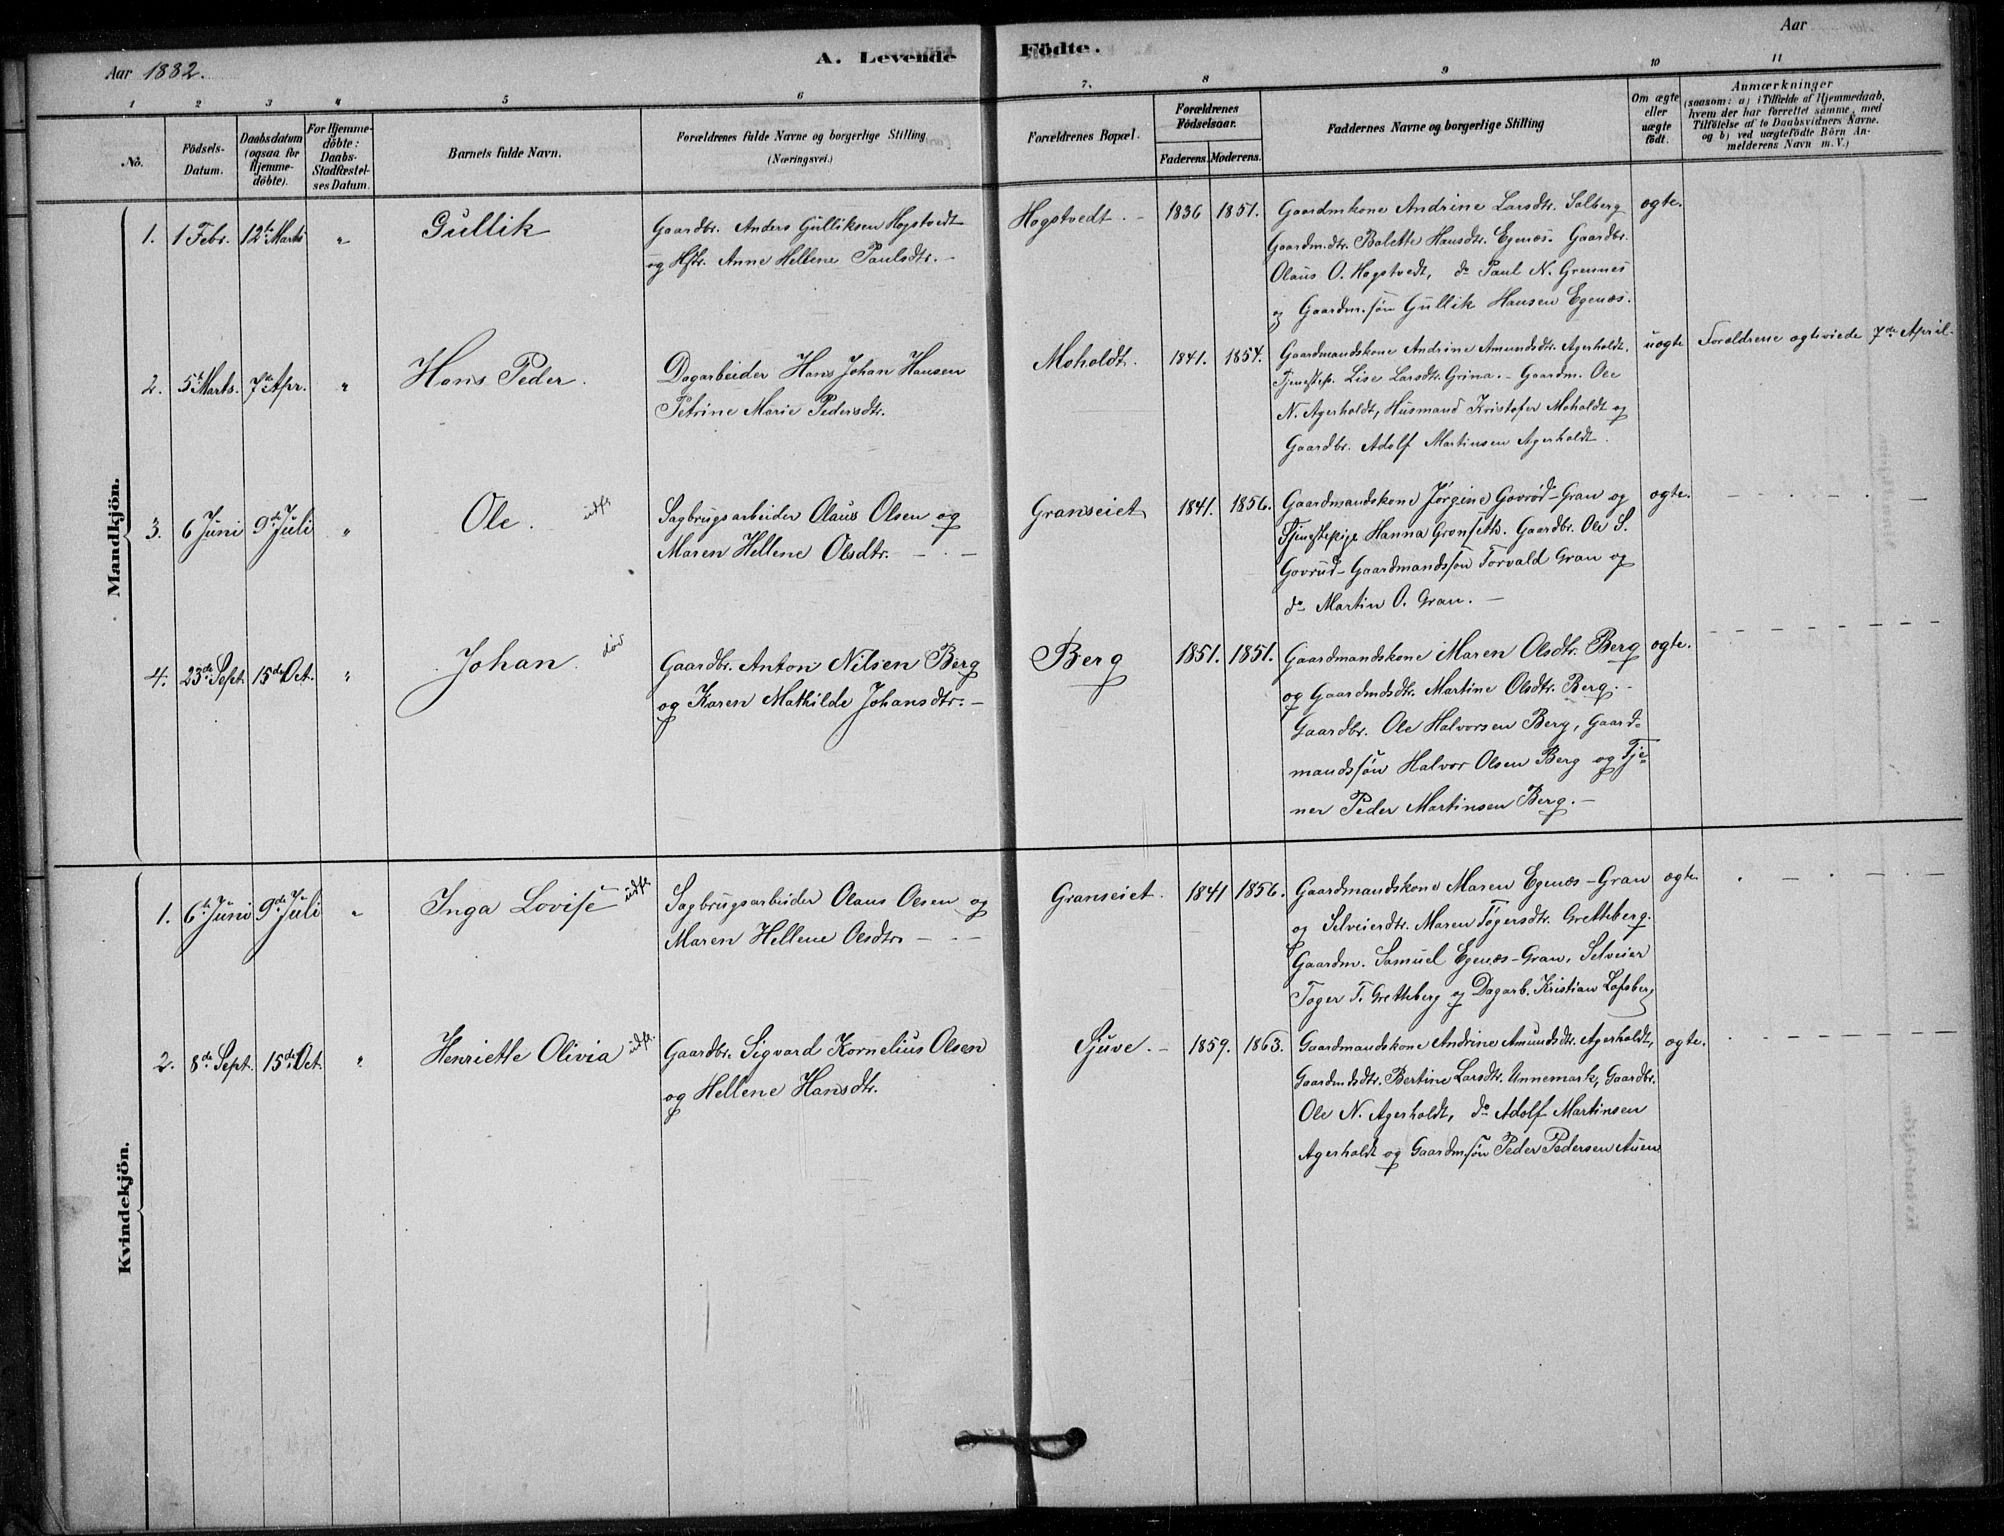 Aar 1882.
A. Levende Födte.
Aar
1 2 3 4 5 6 7. 8 9 10 11
No.
Födsels-Datum.
Daabsdatum (ogsaa for Hjemme-döbte).
For Hjemme-döbte: Daabs-Stadfæstel-ses Datum.
Barnets fulde Navn.
Forældrenes fulde Navne og borgerlige Stilling
(Næringsvei.)
Forældrenes Bopæl.
Forældrenes Födselsaar.
Faderens. Moderens.
Faddernes Navne og borgerlige Stilling
Om ægte eller uægte födt.
Anmærkninger
(saasom: a) i Tilfælde af Hjemmedaab,
hvem der har forrettet samme, med
Tilföielse af to Daabsvidners Navne.
og b) ved uægtefödte Börn An-
melderens Navn m. V.)
Mandkjön.
1. 1 Febr. 12te Marts " Gullik
Gaardbr. Anders Gulliksen Hogstvedt
og Hstr. Anne Hellene Paulsdtr. -
Hogstvedt. - 1836 1851.
Gaardmkone Andrine Larsdtr. Solberg
Gaardm.dtr. Bolette Hansdtr. Egenæs. Gaardbr.
Olaus O. Hogstvedt, do Paul N. Grennes
og Gaardm.søn Gullik Hansen Egenæs.
ægte.
2. 5te Marts. 7de Apr. " Hans Peder.
Dagarbeider Hans Johan Hansen
Petrine Marie Pedersdtr.
Moholdt. 1841. 1854.
Gaardmandskone Andrine Amundsdtr. Agerholdt,
Tjenestep. Lise Larsdtr. Grina. - Gaardm. Ole
N. Agerholdt, Husmand Kristofer Moholdt og
Gaardbr. Adolf Martinsen Agerholdt.
uægte Forældrene ægteviede 7de April.
3. 6 Juni 9de Juli " Ole. udfl
Sagbrugsarbeider Olaus Olsen og
Maren Hellene Olsdtr. - - -
Granseiet 1841. 1856.
Gaardmandskone Jørgine Govrød-Gran og
Tjenestepige Hanna Gronseth. Gaardbr. Ole S.
Govrud- Gaardmandssøn Torvald Gran og
do Martin O. Gran. -
ægte.
4. 23de Sept. 15de Oct. " Johan. død
Gaardbr. Anton Nilsen Berg
og Karen Mathilde Johansdtr. -
Berg 1851. 1851.
Gaardmandskone Maren Olsdtr. Berg
og Gaardmdsdtr. Martine Olsdtr. Berg. -
Gaardbr. Ole Halvorsen Berg, Gaard-
mandssøn Halvor Olsen Berg og Tje-
ner Peder Martinsen Berg. -
ægte.
Kvindekjön.
1. 6te Juni 9de Juli " Inga Lovise udfl
Sagbrugsarbeider Olaus Olsen og
Maren Hellene Olsdtr. - - -
Granseiet. 1841 1856.
Gaardmandskone Maren Egenæs-Gran
og Selveierdtr. Maren Togersdtr. Gretteberg.
Gaardm. Samuel Egenæs-Gran, Selveier
Toger T. Gretteberg og Dagarb. Kristian Lofsberg
ægte
2. 8de Sept. 15de Oct. " Henriette Olivia udfl.
Gaardbr. Sigvard Kornelius Olsen
og Hellene Hansdtr.
Sjuve. - 1859. 1863.
Gaardmandskone Andrine Amundsdtr. Agerholdt,
Gaardmdsdtr. Bertine Larsdtr. Unnemark, Gaardbr.
Ole N. Agerholdt, do Adolf Martinsen
Agerholdt og Gaardm.søn Peder Pedersen Auen
ægte.